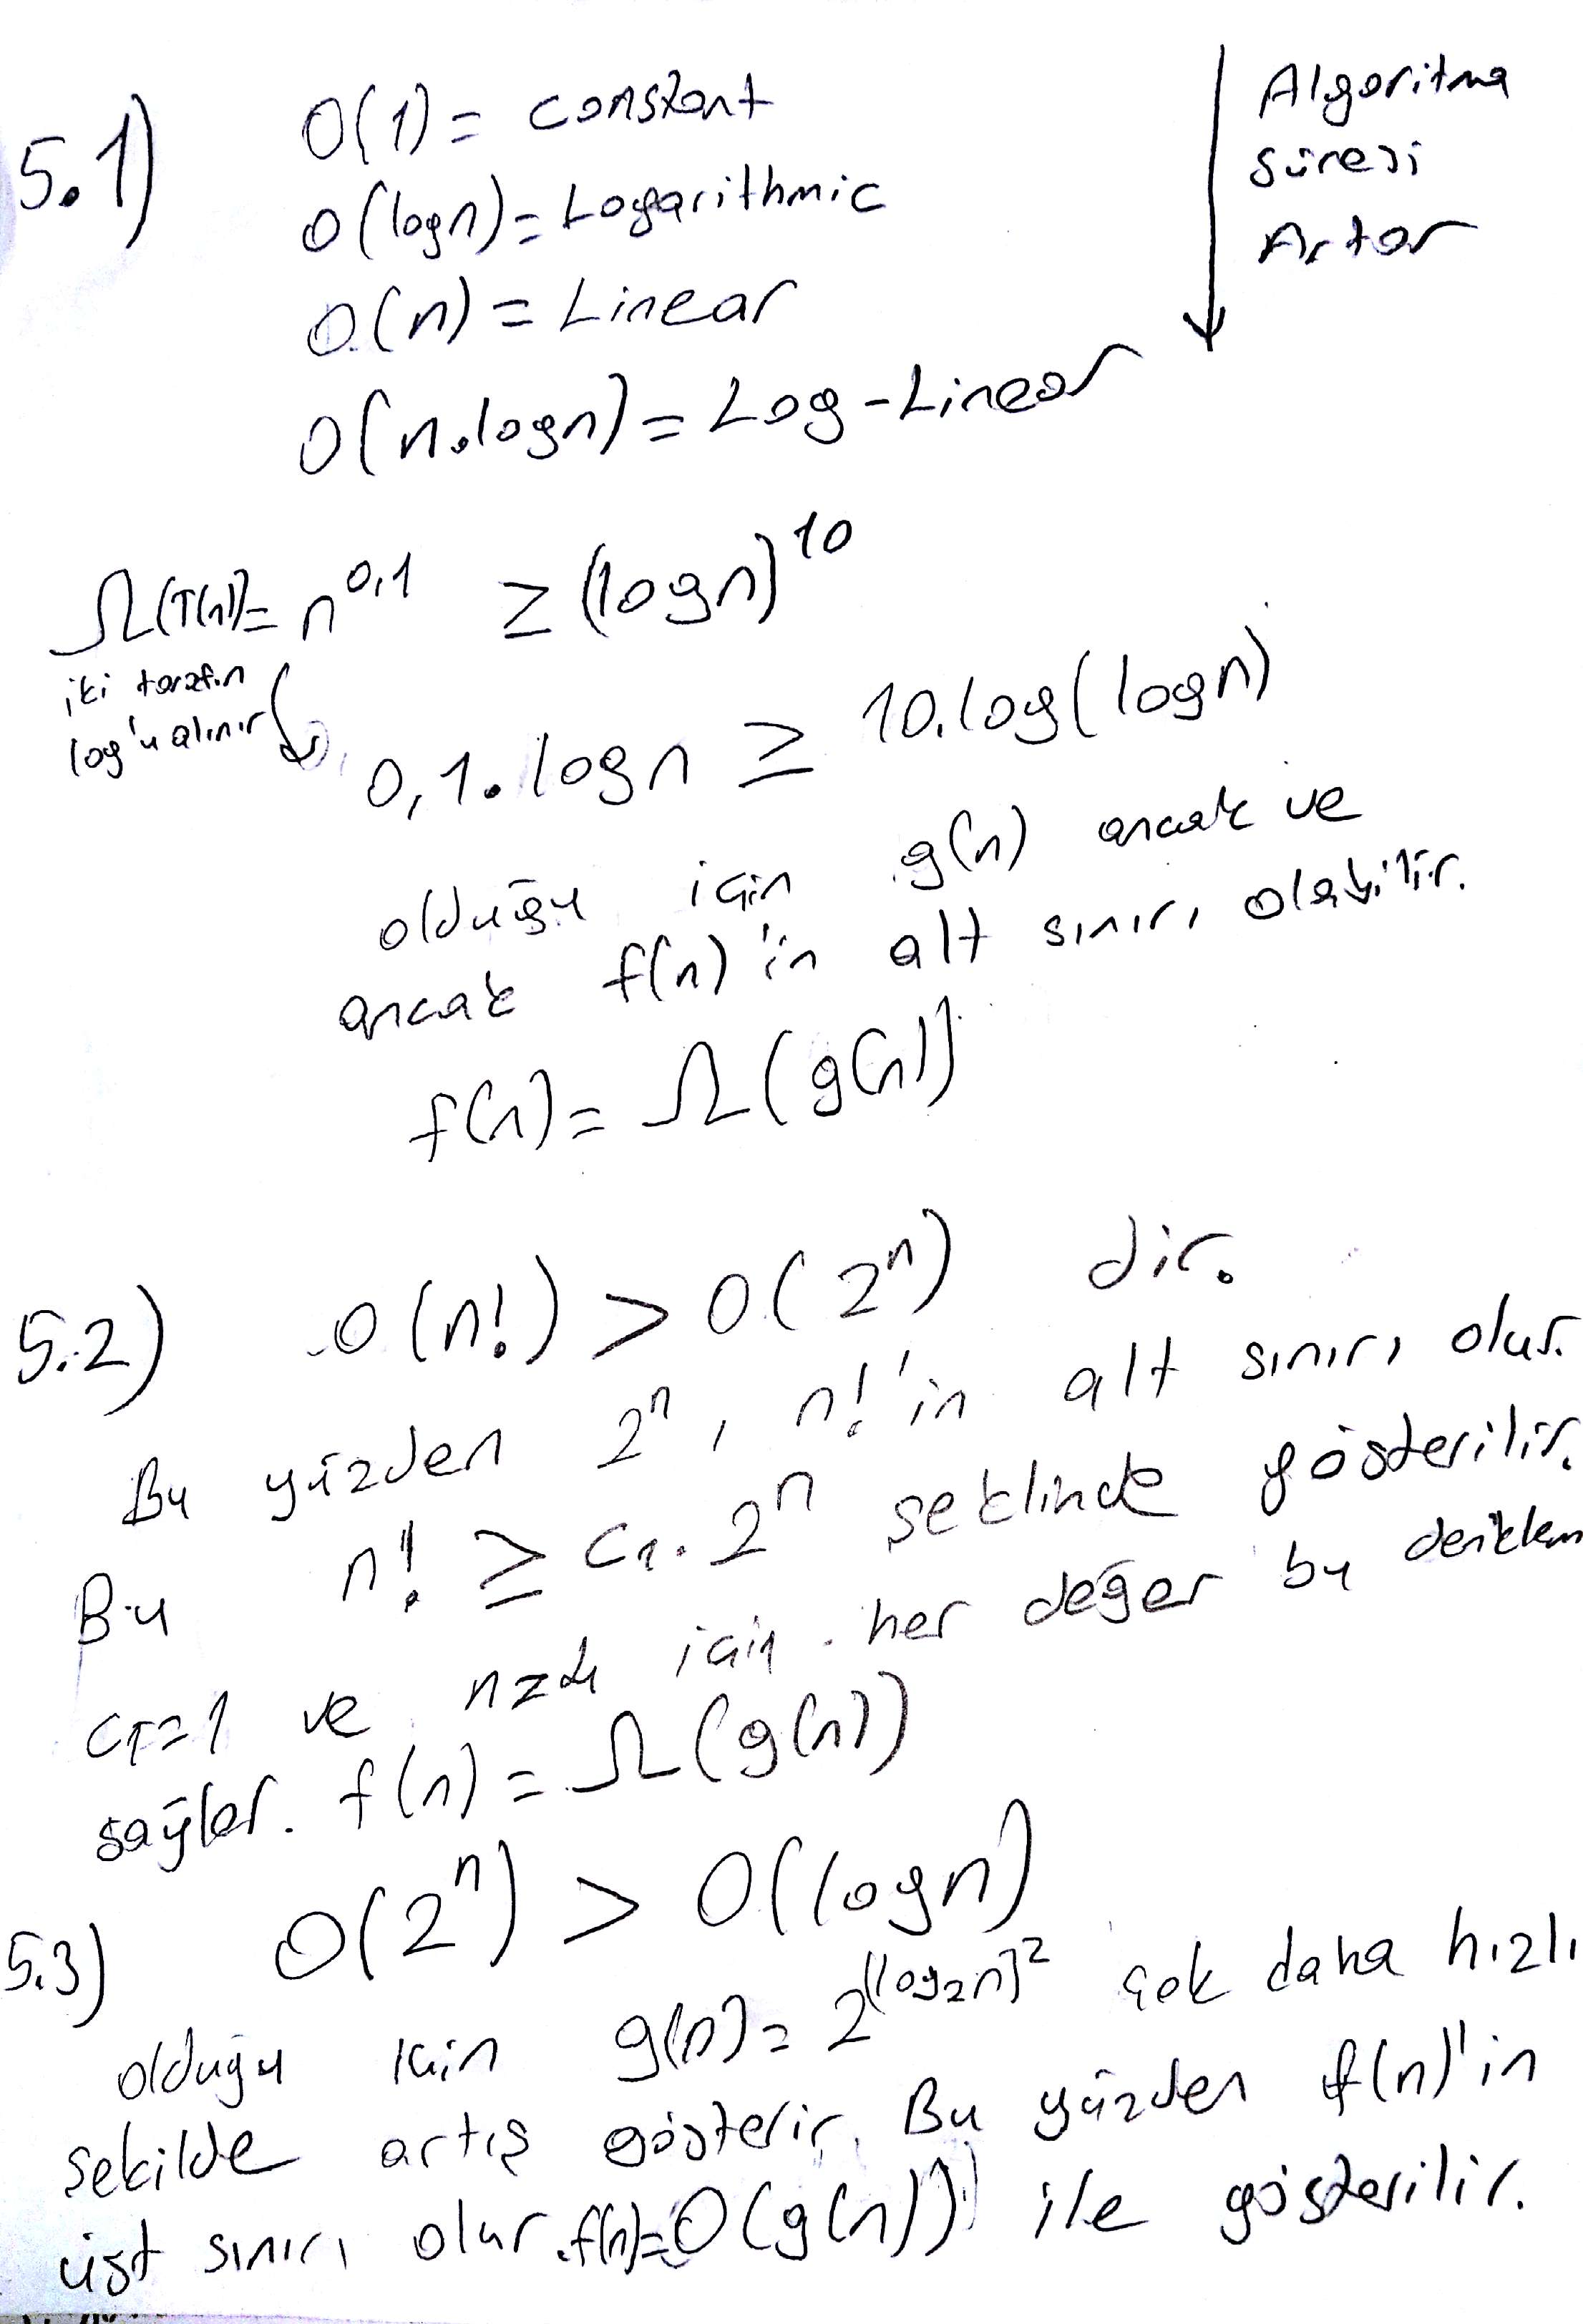 5.1)
O(1) = constant
O(logn) = Logarithmic
O(n) = Linear
O(n.logn) = Log-Linear
Algoritma
süresi
Artar
Ω(T(n)) = n^0,1 ≥ (logn)^10
iki tarafın
log'u alınır
0,1.logn ≥ 10.log(logn)
olduğu için g(n) ancak ve
ancak f(n)'in alt sınırı olabilir.
f(n) = Ω(g(n))
5.2) O(n!) > O(2^n) dir.
Bu yüzden 2^n, n!'in alt sınırı olur.
Bu n! ≥ c1.2^n şeklinde gösterilir.
c1=1 ve n≥4 için her değer bu denklem
sağlar. f(n) = Ω(g(n))
5.3) O(2^n) > O(logn)
olduğu için g(n) = 2^(log₂n)^2 çok daha hızlı
şekilde artış gösterir. Bu yüzden f(n)'in
üst sınırı olur. f(n)=O(g(n)) ile gösterilir.